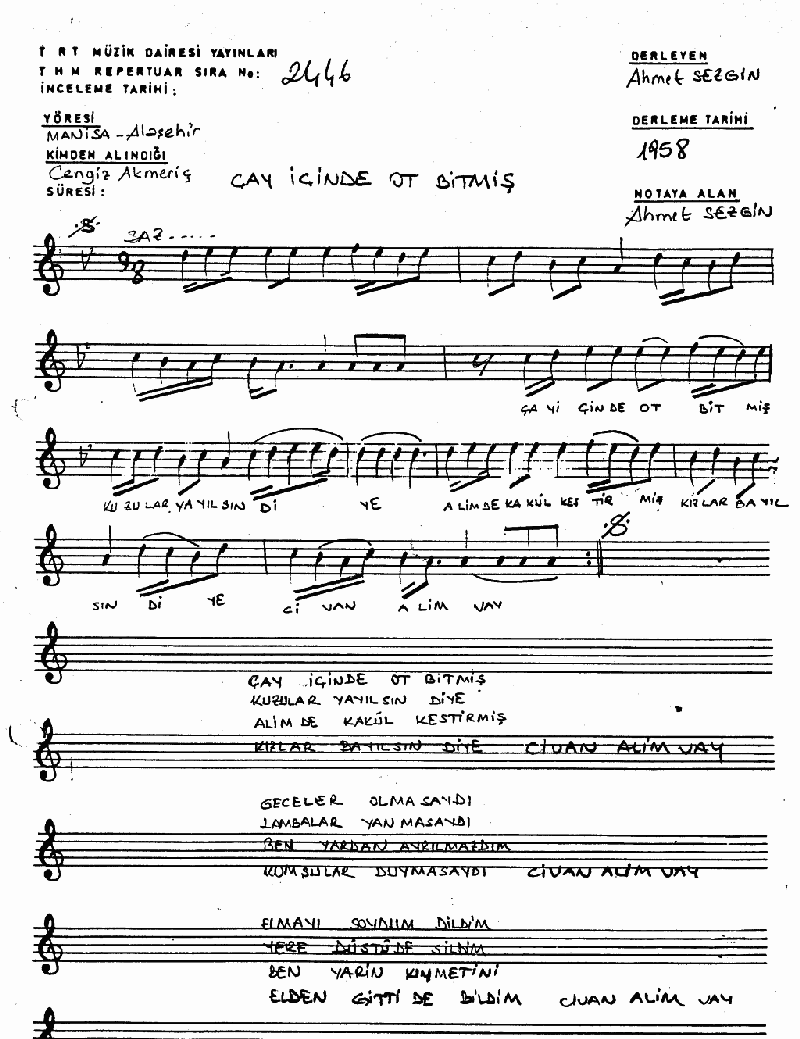 T R T MÜZİK DAİRESİ YAYINLARI
T H M REPERTUAR SIRA No: 2446
İNCELEME TARİHİ:
YÖRESİ
MANİSA - Alaşehir
KİMDEN ALINDIĞI
Cengiz Akmeriç
SÜRESİ:
DERLEYEN
Ahmet SEZGİN
DERLEME TARİHİ
1958
NOTAYA ALAN
Ahmet SEZGİN
ÇAY İÇİNDE OT BİTMİŞ
SAZ.....
9/8
ÇA Yİ ÇİNDE OT BİT MİŞ
KU ZU LAR YA YIL SIN Dİ YE A LİM DE KA KÜL KES TİR MİŞ KIZLAR BA YIL
SIN Dİ YE Cİ VAN A LİM VAY
ÇAY İÇİNDE OT BİTMİŞ
KUZULAR YAYILSIN DİYE
ALİM DE KAKÜL KESTİRMİŞ
KIZLAR BAYILSIN DİYE CİVAN ALİM VAY
GECELER OLMASAYDI
LAMBALAR YANMASAYDI
BEN YARDAN AYRILMAZDIM
KOMŞULAR DUYMASAYDI CİVAN ALİM VAY
ELMAYI SOYDUM DİLDİM
YERE DÜŞTÜ DE SİLDİM
BEN YARİN KIYMETİNİ
ELDEN GİTTİ DE BİLDİM CİVAN ALİM VAY